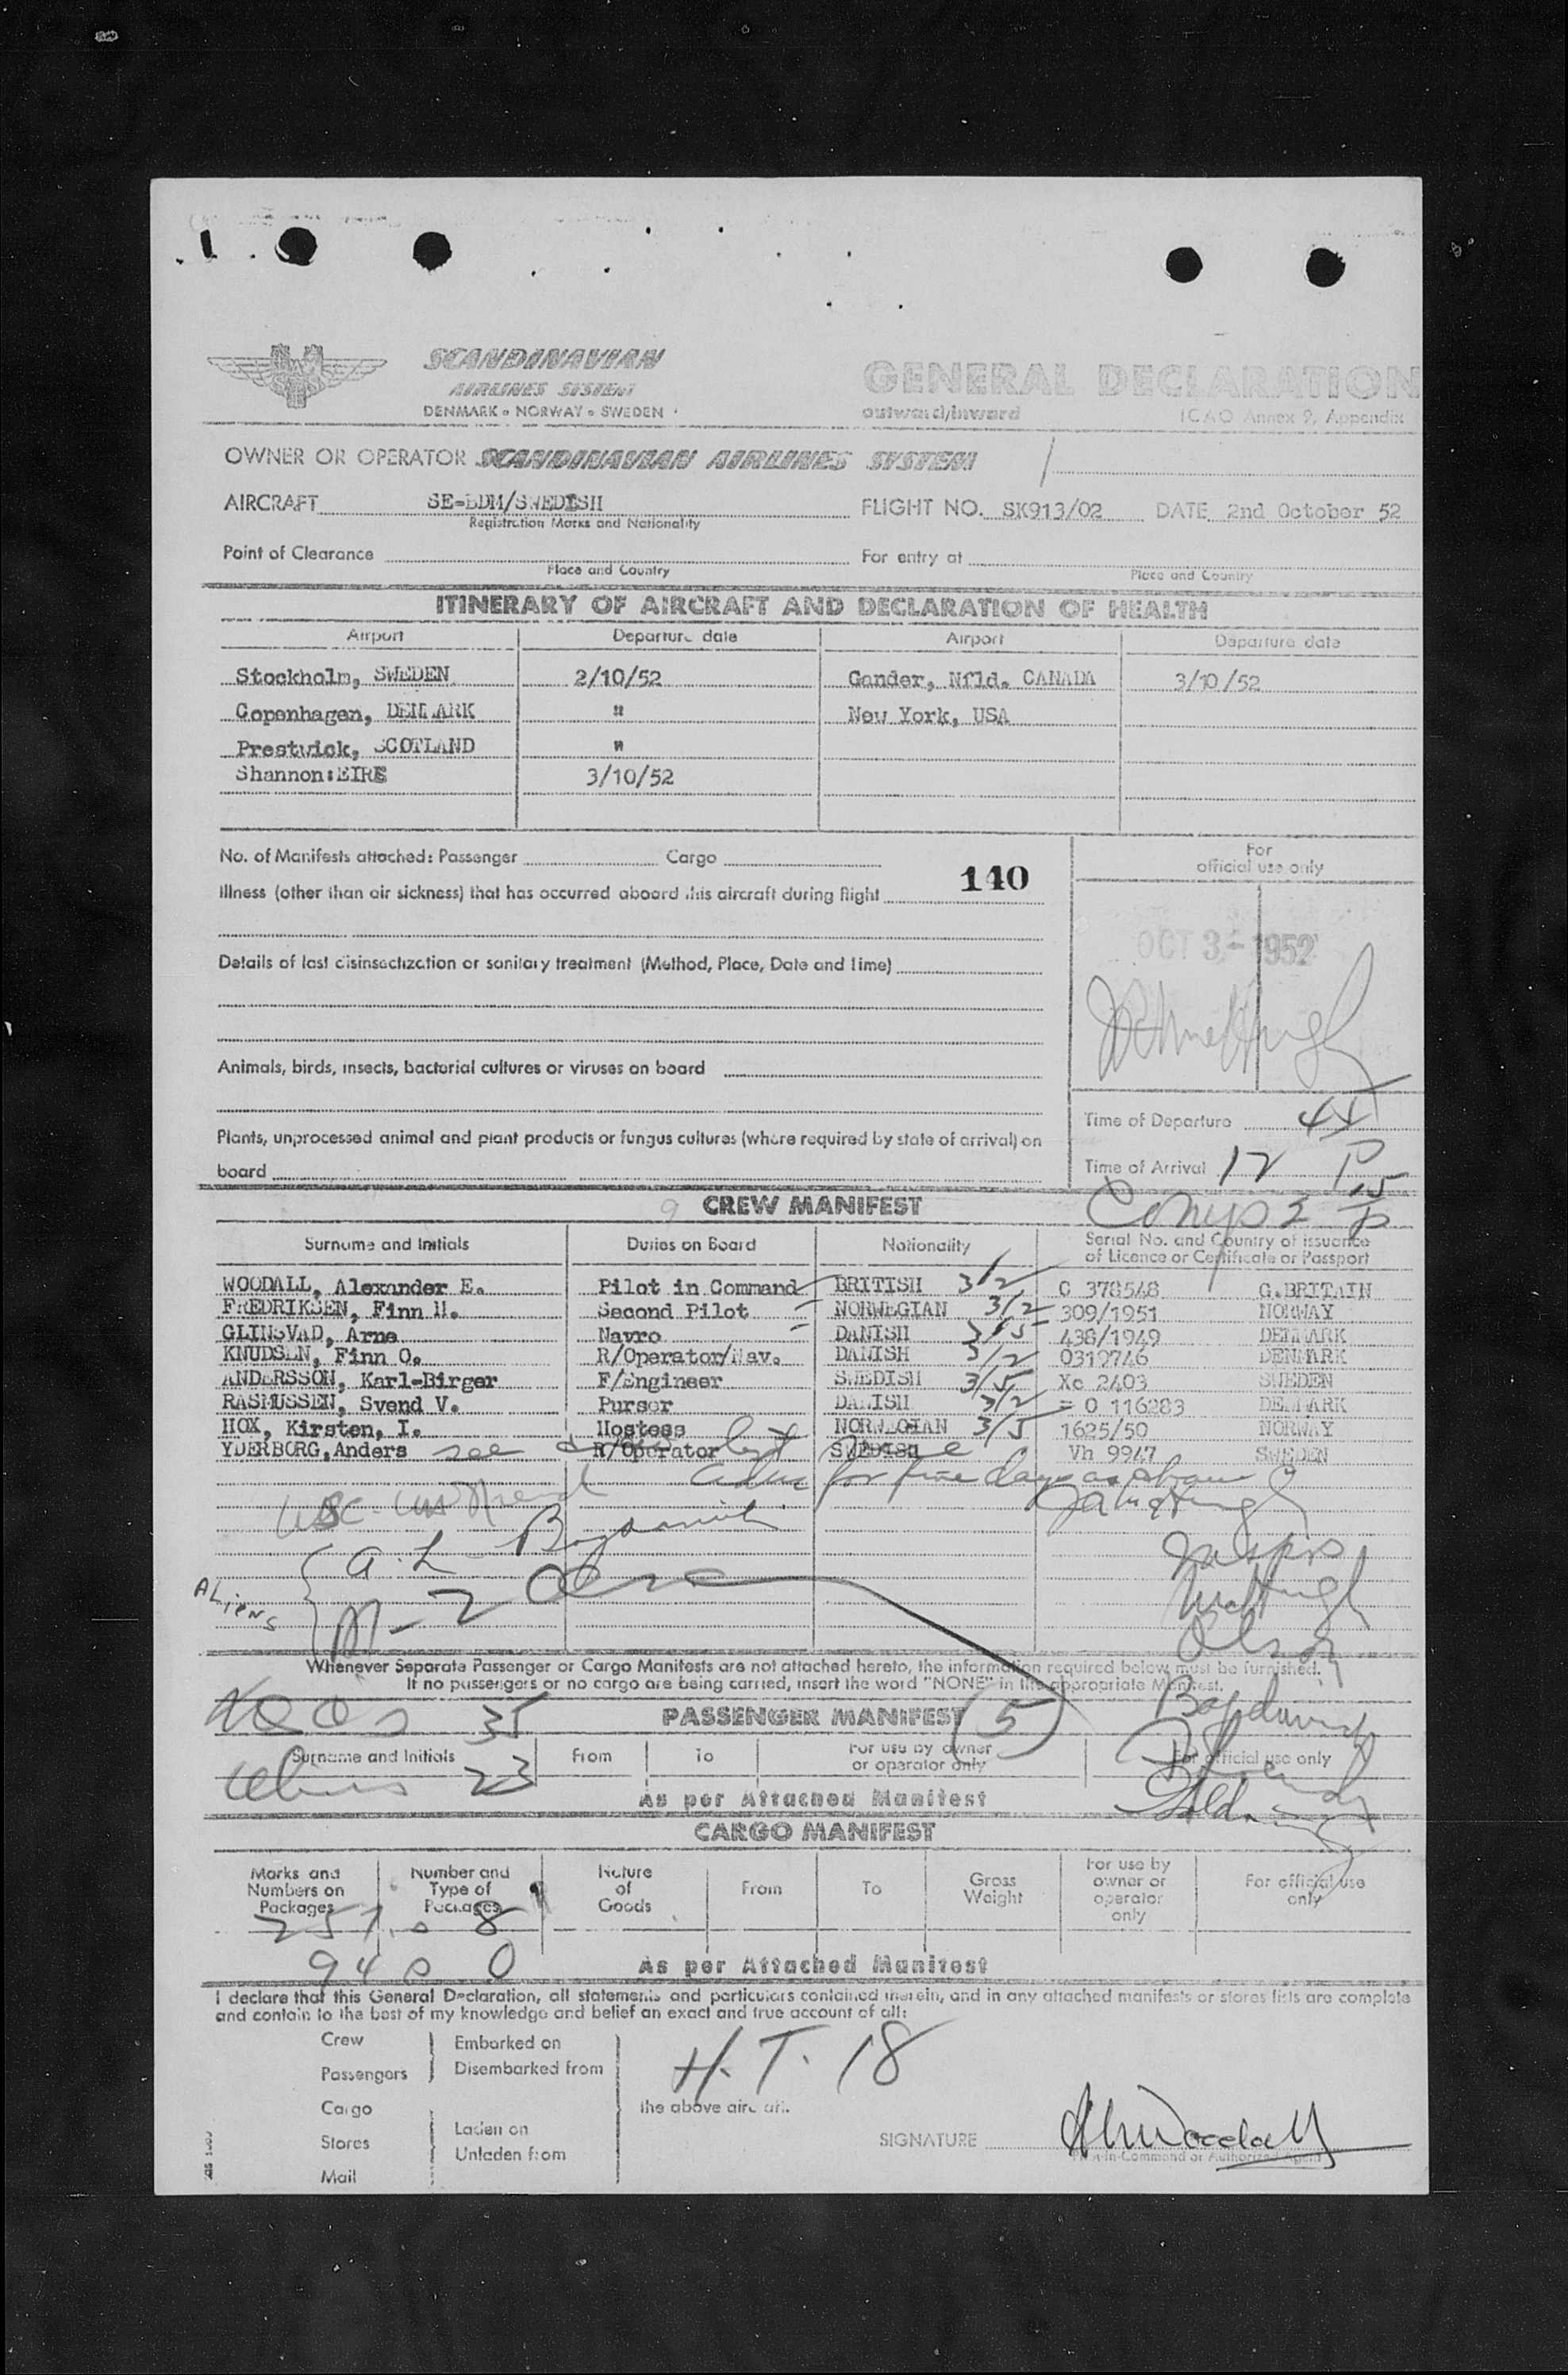 SCANDINAVIAN
AIRLINES SYSTEM
DENMARK • NORWAY • SWEDEN
GENERAL DECLARATION
outward/inward
ICAO Annex 9, Appendix
OWNER OR OPERATOR SCANDINAVIAN AIRLINES SYSTEM
AIRCRAFT SE-BDM/SWEDISH FLIGHT NO. SK913/02 DATE 2nd October 52
Registration Marks and Nationality
Point of Clearance For entry at
Place and Country Place and Country
ITINERARY OF AIRCRAFT AND DECLARATION OF HEALTH
Airport Departure date Airport Departure date
Stockholm, SWEDEN 2/10/52 Gander, Nfld. CANADA 3/10/52
Copenhagen, DENMARK " New York, USA
Prestwick, SCOTLAND "
Shannon:EIRE 3/10/52
No. of Manifests attached: Passenger Cargo
140
For
official use only
Illness (other than air sickness) that has occurred aboard this aircraft during flight
OCT 3 - 1952
Details of last disinsectization or sanitary treatment (Method, Place, Date and Time)
Animals, birds, insects, bacterial cultures or viruses on board
Time of Departure
Plants, unprocessed animal and plant products or fungus cultures (where required by state of arrival) on
board
Time of Arrival 12
9 CREW MANIFEST
Surname and Initials Duties on Board Nationality Serial No. and Country of issuance
of Licence or Certificate or Passport
WOODALL, Alexander E. Pilot in Command BRITISH 3/2 C 378548 G.BRITAIN
FREDRIKSEN, Finn H. Second Pilot NORWEGIAN 3/2 309/1951 NORWAY
GLINSVAD, Arne Navro DANISH 3/5 438/1949 DENMARK
KNUDSEN, Finn O. R/Operator/Nav. DANISH 3/2 0319746 DENMARK
ANDERSSON, Karl-Birger F/Engineer SWEDISH 3/5 Xc 2403 SWEDEN
RASMUSSEN, Svend V. Purser DANISH 3/2 = 0 116283 DENMARK
HOX, Kirsten, I. Hostess NORWEGIAN 3/5 1625/50 NORWAY
YDERBORG, Anders see R/Operator SWEDISH Vh 9947 SWEDEN
Aliens
Whenever Separate Passenger or Cargo Manifests are not attached hereto, the information required below must be furnished.
If no passengers or no cargo are being carried, insert the word "NONE" in the appropriate Manifest.
35 PASSENGER MANIFEST 5
Surname and Initials From To For use by owner
or operator only For official use only
23
As per Attached Manifest
CARGO MANIFEST
Marks and
Numbers on
Packages Number and
Type of
Packages Nature
of
Goods From To Gross
Weight For use by
owner or
operator
only For official use
only
As per Attached Manifest
I declare that this General Declaration, all statements and particulars contained therein, and in any attached manifests or stores lists are complete
and contain to the best of my knowledge and belief an exact and true account of all:
Crew Embarked on
Passengers Disembarked from
H.T. 18
Cargo the above aircraft.
Stores Laden on
Unladen from
Mail
SIGNATURE
Pilot-in-Command or Authorized Agent